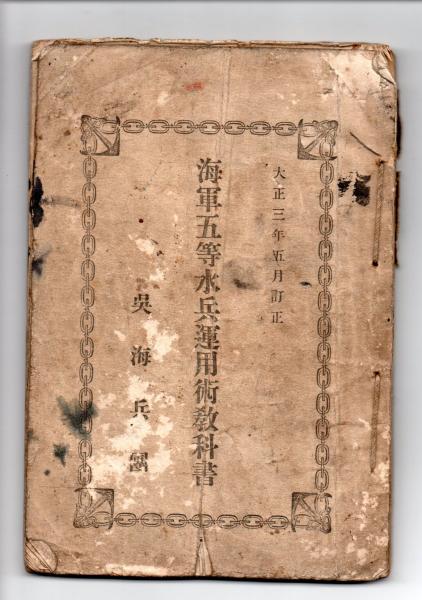 大正三年五月訂正
海軍五等水兵運用術教科書
呉海兵團